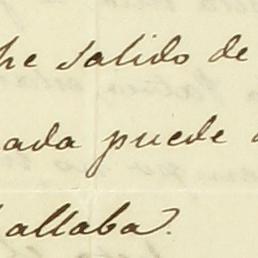 he salido de
ada puede
allaba.